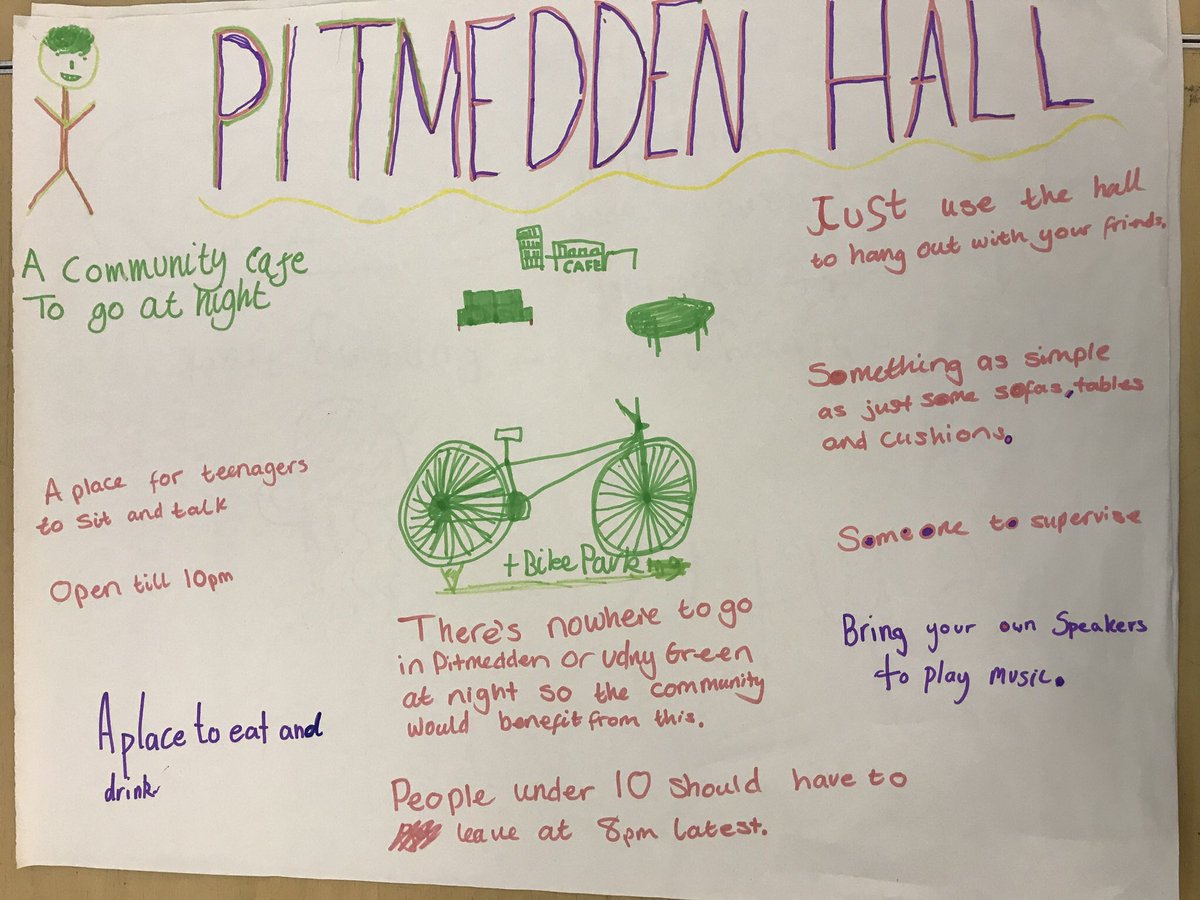 PITMEDDEN HALL
A Community cafe
To go at night
CAFE
Just use the hall
to hang out with your friends.
Something as simple
as just some sofas, tables
and cushions.
A place for teenagers
to sit and talk
Open till 10pm
+ Bike Parking
Someone to supervise
There's nowhere to go
in Pitmedden or Udny Green
at night so the community
would benefit from this.
Bring your own Speakers
to play music.
A place to eat and
drink
People under 10 should have to
leave at 8pm latest.